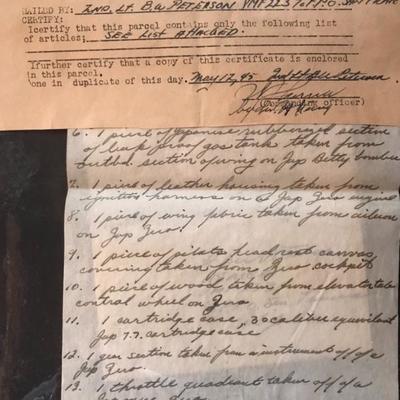 MAILED BY: 2ND. LT. B.W. PETERSON VMF 223 % F.P.O. SAN FRAN.
CERTIFY:
I certify that this parcel contains only the following list
of articles; SEE LIST ATTACHED.
I further certify that a copy of this certificate is enclosed
in this parcel.
one in duplicate of this day. May 12, 45
(Commanding officer)
6. 1 piece of Japanese rubberized section
of leak proof gas tank taken from
outbd. section of wing on Jap Betty bomber
7. 1 piece of leather housing taken from
ignition harness on a Jap Zero engine
8. 1 piece of wing fabric taken from aileron
on Jap Zero.
9. 1 piece of pilots head rest canvas
covering taken from Zero cockpit
10. 1 piece of wood taken from elevator tab
control wheel on Zero
11. 1 cartridge case, 30 calibre equivilant
Jap 7.7. cartridge case
12. 1 gear section taken from a instrument off of a
Jap Zero.
13. 1 throttle quadrant taken off of a